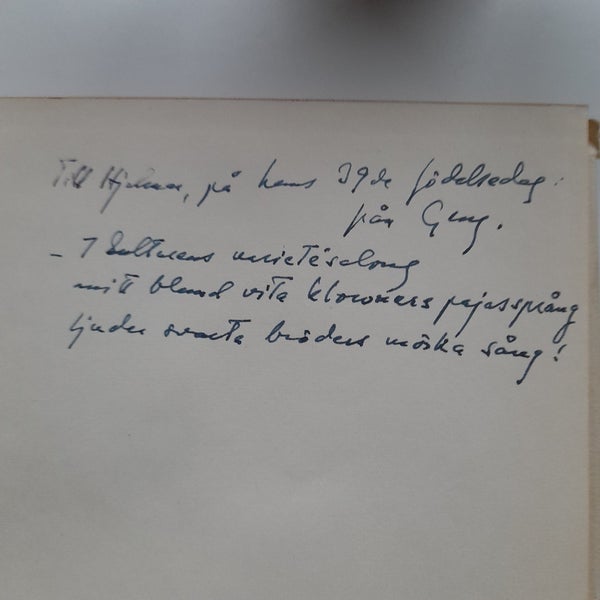 Till Hjalmar, på hans 39de födelsedag:
från
– I Kulturens varietésalong
mitt bland vita clowners pajasssprång
ljuder svarta bröders mörka sång!